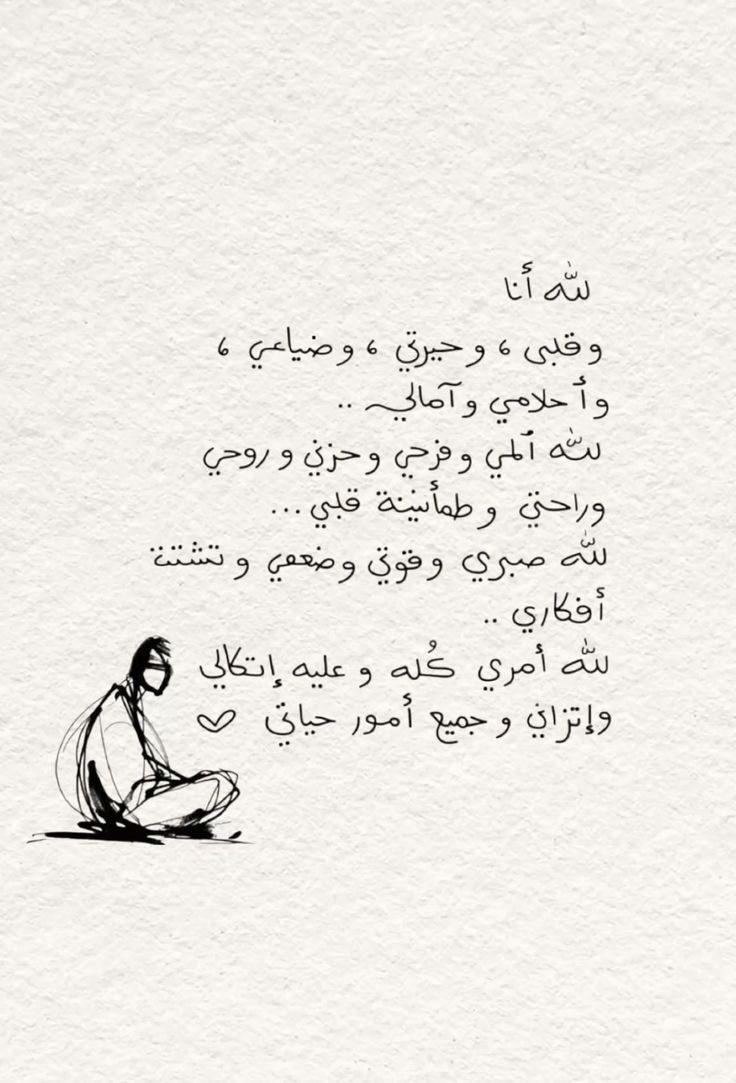 لله أنا
وقلبى ، وحيرتي ، وضياعي ،
وأحلامي وآمالي ..
لله ألمي وفرحي وحزني وروحي
وراحتي وطمأنينة قلبي ...
لله صبري وقوتي وضعفي وتشتت
أفكاري ..
لله أمري كُله وعليه إتكالي
وإتزاني وجميع أمور حياتي ♡